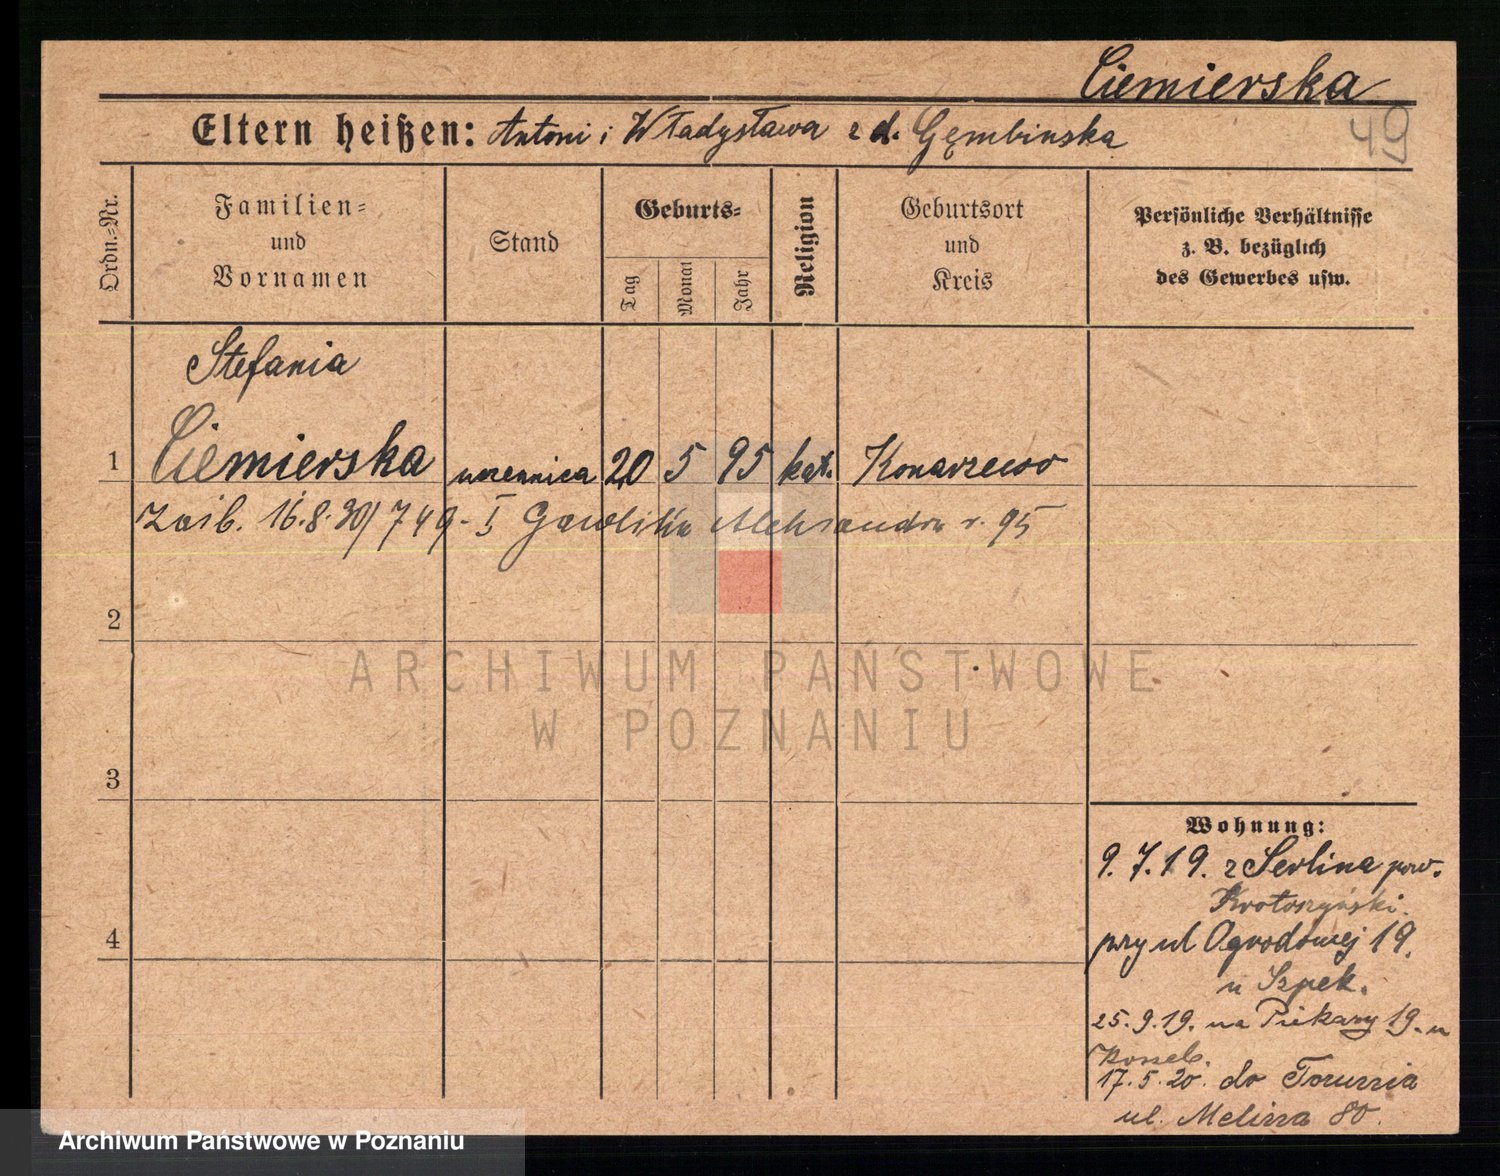 Ciemierska
49
Eltern heißen: Antoni i Władysława z d. Gębinska
Ordn.-Nr.
Familien- und Vornamen
Stand
Geburts-
Tag
Monat
Jahr
Religion
Geburtsort und Kreis
Persönliche Verhältnisse
z. B. bezüglich
des Gewerbes usw.
Stefania
1 Ciemierska uczennica 20 5 95 kat. Konarzewo
16.8.30/749-I Aleksandra r. 95
2
3
4
Wohnung:
9.7.19. z pow.
Krotoszyński.
przy ul Ogrodowej 19.
u Szpek.
25.9.19. na Piekary 19. u
17.5.20. do Torunia
ul. 80.
ARCHIWUM PAŃSTWOWE
W POZNANIU
Archiwum Państwowe w Poznaniu